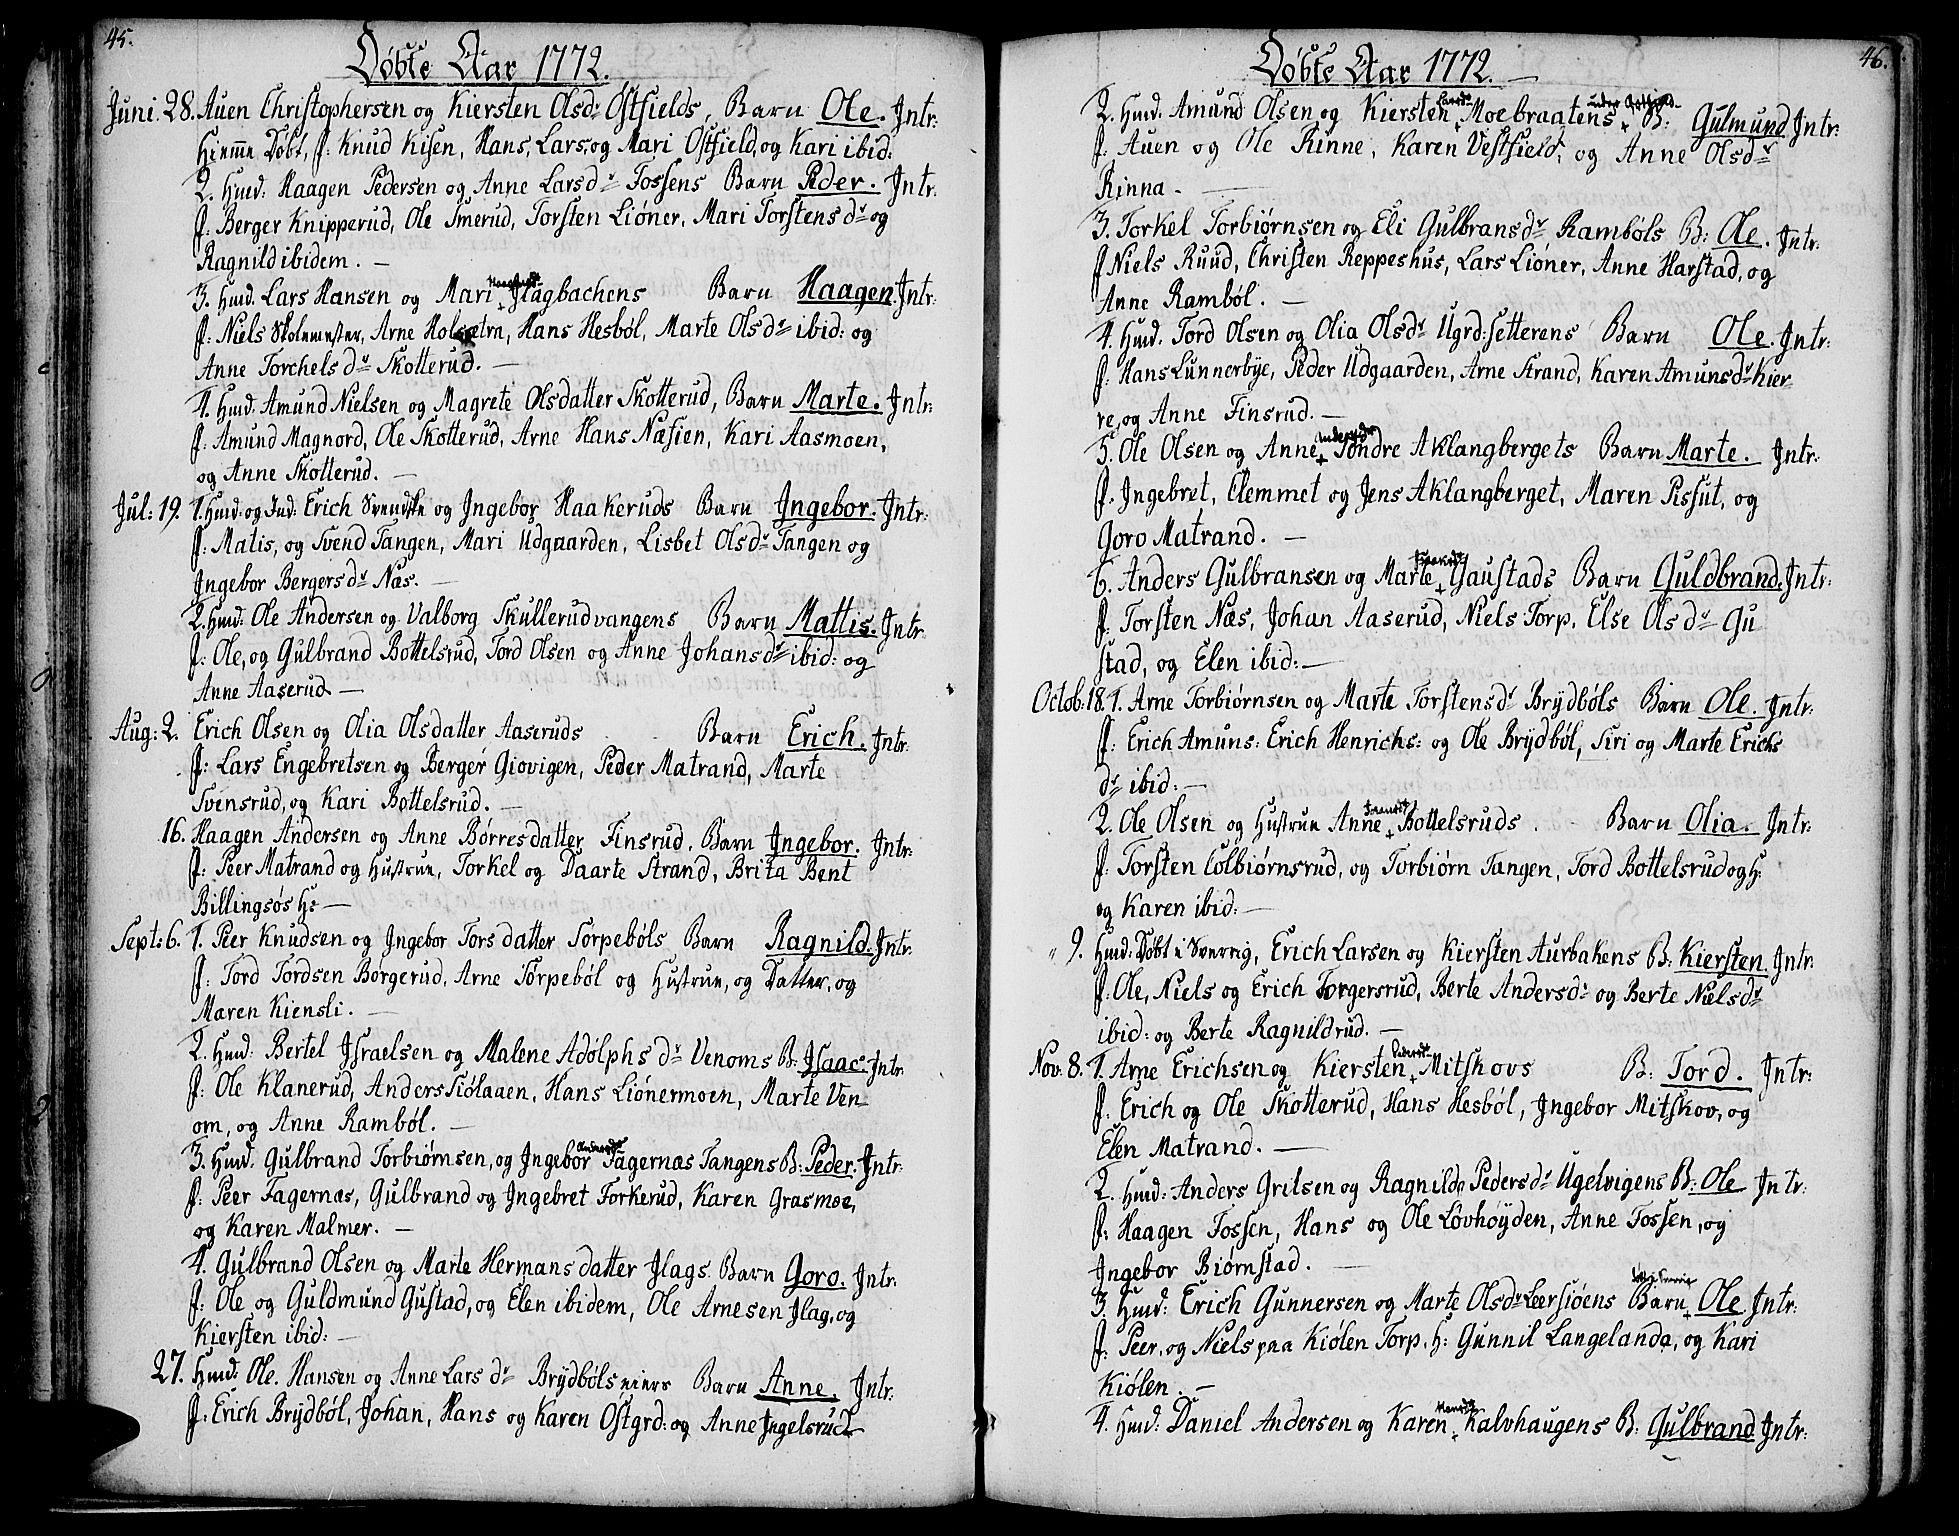 45.
Döbte Aar 1772.
Juni. 28. Auen Christophersen og Kiersten Olsdr Östfields, Barn Ole. Intr:
Hiemme Döbt, f: Knud Kisen, Hans, Lars, og Mari Östfield, og Kari ibid:
2. Hmd: Haagen Pedersen og Anne Larsdr Fossens Barn Peder. Intr.
f: Berger Knipperud, Ole Smerud, Torsten Liöner, Mari Torstensdr og
Ragnild ibidem. –
3. Hmd. Lars Hansen og Mari Ilagbachens Barn Haagen. Intr:
f: Niels Skolemester, Arne Holsætra, Hans Hesböl, Marte Olsdr ibid: og
Anne Torchelsdr Skotterud. –
4. Hmd. Amund Nielsen og Magrete Olsdatter Skotterud, Barn Marte. Intr:
f: Amund Magnord, Ole Skotterud, Arne Hans Næsien, Kari Aasmoen,
og Anne Skotterud. –
Jul: 19. 1. Hmd: og Ind: Erich Svendske og Ingebor Haakeruds Barn Ingebor. Intr:
f: Matis, og Svend Tangen, Mari Udgaarden, Lisbet Olsdr Tangen og
Ingebor Bergersdr Næs. –
2. Hmd: Ole Andersen og Valborg Skullerudvangens Barn Mattis. Intr:
f: Ole, og Gulbrand Bottelsrud, Tord Olsen og Anne Johansdr ibid: og
Anne Aaserud –
Aug: 2. Erich Olsen og Olia Olsdatter Aaseruds Barn Erich. Intr.
f: Lars Engebretsen og Berger Giovigen, Peder Matrand, Marte
Svensrud, og Kari Bottelsrud. –
16. Haagen Andersen og Anne Börresdatter Finsrud, Barn Ingebor. Intr:
f: Peer Matrand og Hustrue, Torkel og Daarte Strand, Brita Bent
Billingsös H: –
Sept: 6. 1. Peer Knudsen og Ingebor Torsdatter Torpeböls Barn Ragnild. Intr:
f: Tord Tordsen Börgerud, Arne Torpeböl og Hustrue, og Datter, og
Maren Kiensli. –
2. Hmd: Bertel Israelsen og Malene Adolphsdr Venoms B: Isaac. Intr.
f: Ole Klanerud, Anders Siölaaen, Hans Liönermoen, Marte Ven-
om, og Anne Ramböl. –
3. Hmd. Gulbrand Torbiörnsen, og Ingebor Andersdr Fagernæs Tangens B: Peder. Intr:
f: Peer Fagernæs, Gulbrand og Ingebret Torkerud, Karen Grasmoe,
og Karen Malmer. –
4. Gulbrand Olsen og Marte Hermansdatter Ilags Barn Goro. Intr:
f: Ole og Guldmund Gustad, og Elen ibidem, Ole Arnesen Ilag, og
Kiersten ibid: –
27. Hmd: Ole Hansen og Anne Larsdr Brydböls eiers Barn Anne. Intr.
f: Erich Brydböl, Johan, Hans og Karen Östgrd: og Anne Ingelsrud
46.
Döbte Aar 1772. –
2. Hmd. Amund Olsen og Kiersten Larsdr Moebraatens under Östfield B: Gulmund Intr:
f: Auen og Ole Rinne, Karen Vestfield, og Anne Olsdr
Rinna –
3. Torkel Torbiörnsen og Eli Gulbransdr Ramböls B: Ole. Intr:
f Niels Ruud, Christen Reppeshus, Lars Liöner, Anne Harstad, og
Anne Ramböl. –
4. Hmd. Tord Olsen og Olia Olsdr Ugrd: setterens Barn Ole. Intr:
f: Hans Lunnerbye, Peder Udgaarden, Arne Strand, Karen Amunsdr Kier-
re, og Anne Finsrud. –
5. Ole Olsen og Anne Tondre Aklangbergets Barn Marte. Intr:
f. Ingebret, Clemmet og Jens Aklangberget, Maren Pissut, og
Goro Matrand. –
6. Anders Gulbransen og Marte Gaustads Barn Guldbrand. Intr:
f: Torsten Næs, Johan Aaserud, Niels Torp, Else Olsdr Gu
stad, og Elen ibid: –
Octob: 18. 1. Arne Torbiörnsen og Marte Torstensdr Brydböls Barn Ole. Intr:
f: Erich Amuns: Erich Henrichs: og Ole Brydböl, Siri og Marte Erichs
dr ibid: –
2. Ole Olsen og Hustrue Anne Bottelsruds. Barn Olia. Intr:
f: Torsten Colbiörnsrud, og Torbiörn Tangen, Tord Bottelsrud og H:
og Karen ibid: –
" 9. Hmd: Döbt i Sverrig, Erich Larsen og Kiersten Aurbakens B: Kiersten. Intr:
f: Ole, Niels og Erich Torgersrud, Berte Andersdr og Berte Nielsdr
ibid: og Berte Ragnildrud. –
Nov. 8. 1. Arne Erichsen og Kiersten Pedersdr Mitskovs B: Tord. Intr:
f: Erich og Ole Skotterud, Hans Hesböl, Ingebor Mitskov, og
Elen Matrand. –
2. Hmd: Anders Gritsen og Ragnilda Pedersdr Ugelvigens B: Ole Intr:
f: Haagen Fossen, Hans og Ole Lövhöyden, Anne Fossen, og
Ingebor Biörnstad. –
3. Hmd: Erich Gunnersen og Marte Olsdr Leersiöens Barn döbt i Sverrig Ole. Intr:
f: Peer, og Niels paa Kiölen Torp, H: Gunnil Langelanda, og Kari
Kiölen. –
4. Hmd: Daniel Andersen og Karen Kalvhaugens B: Gulbrand Intr: